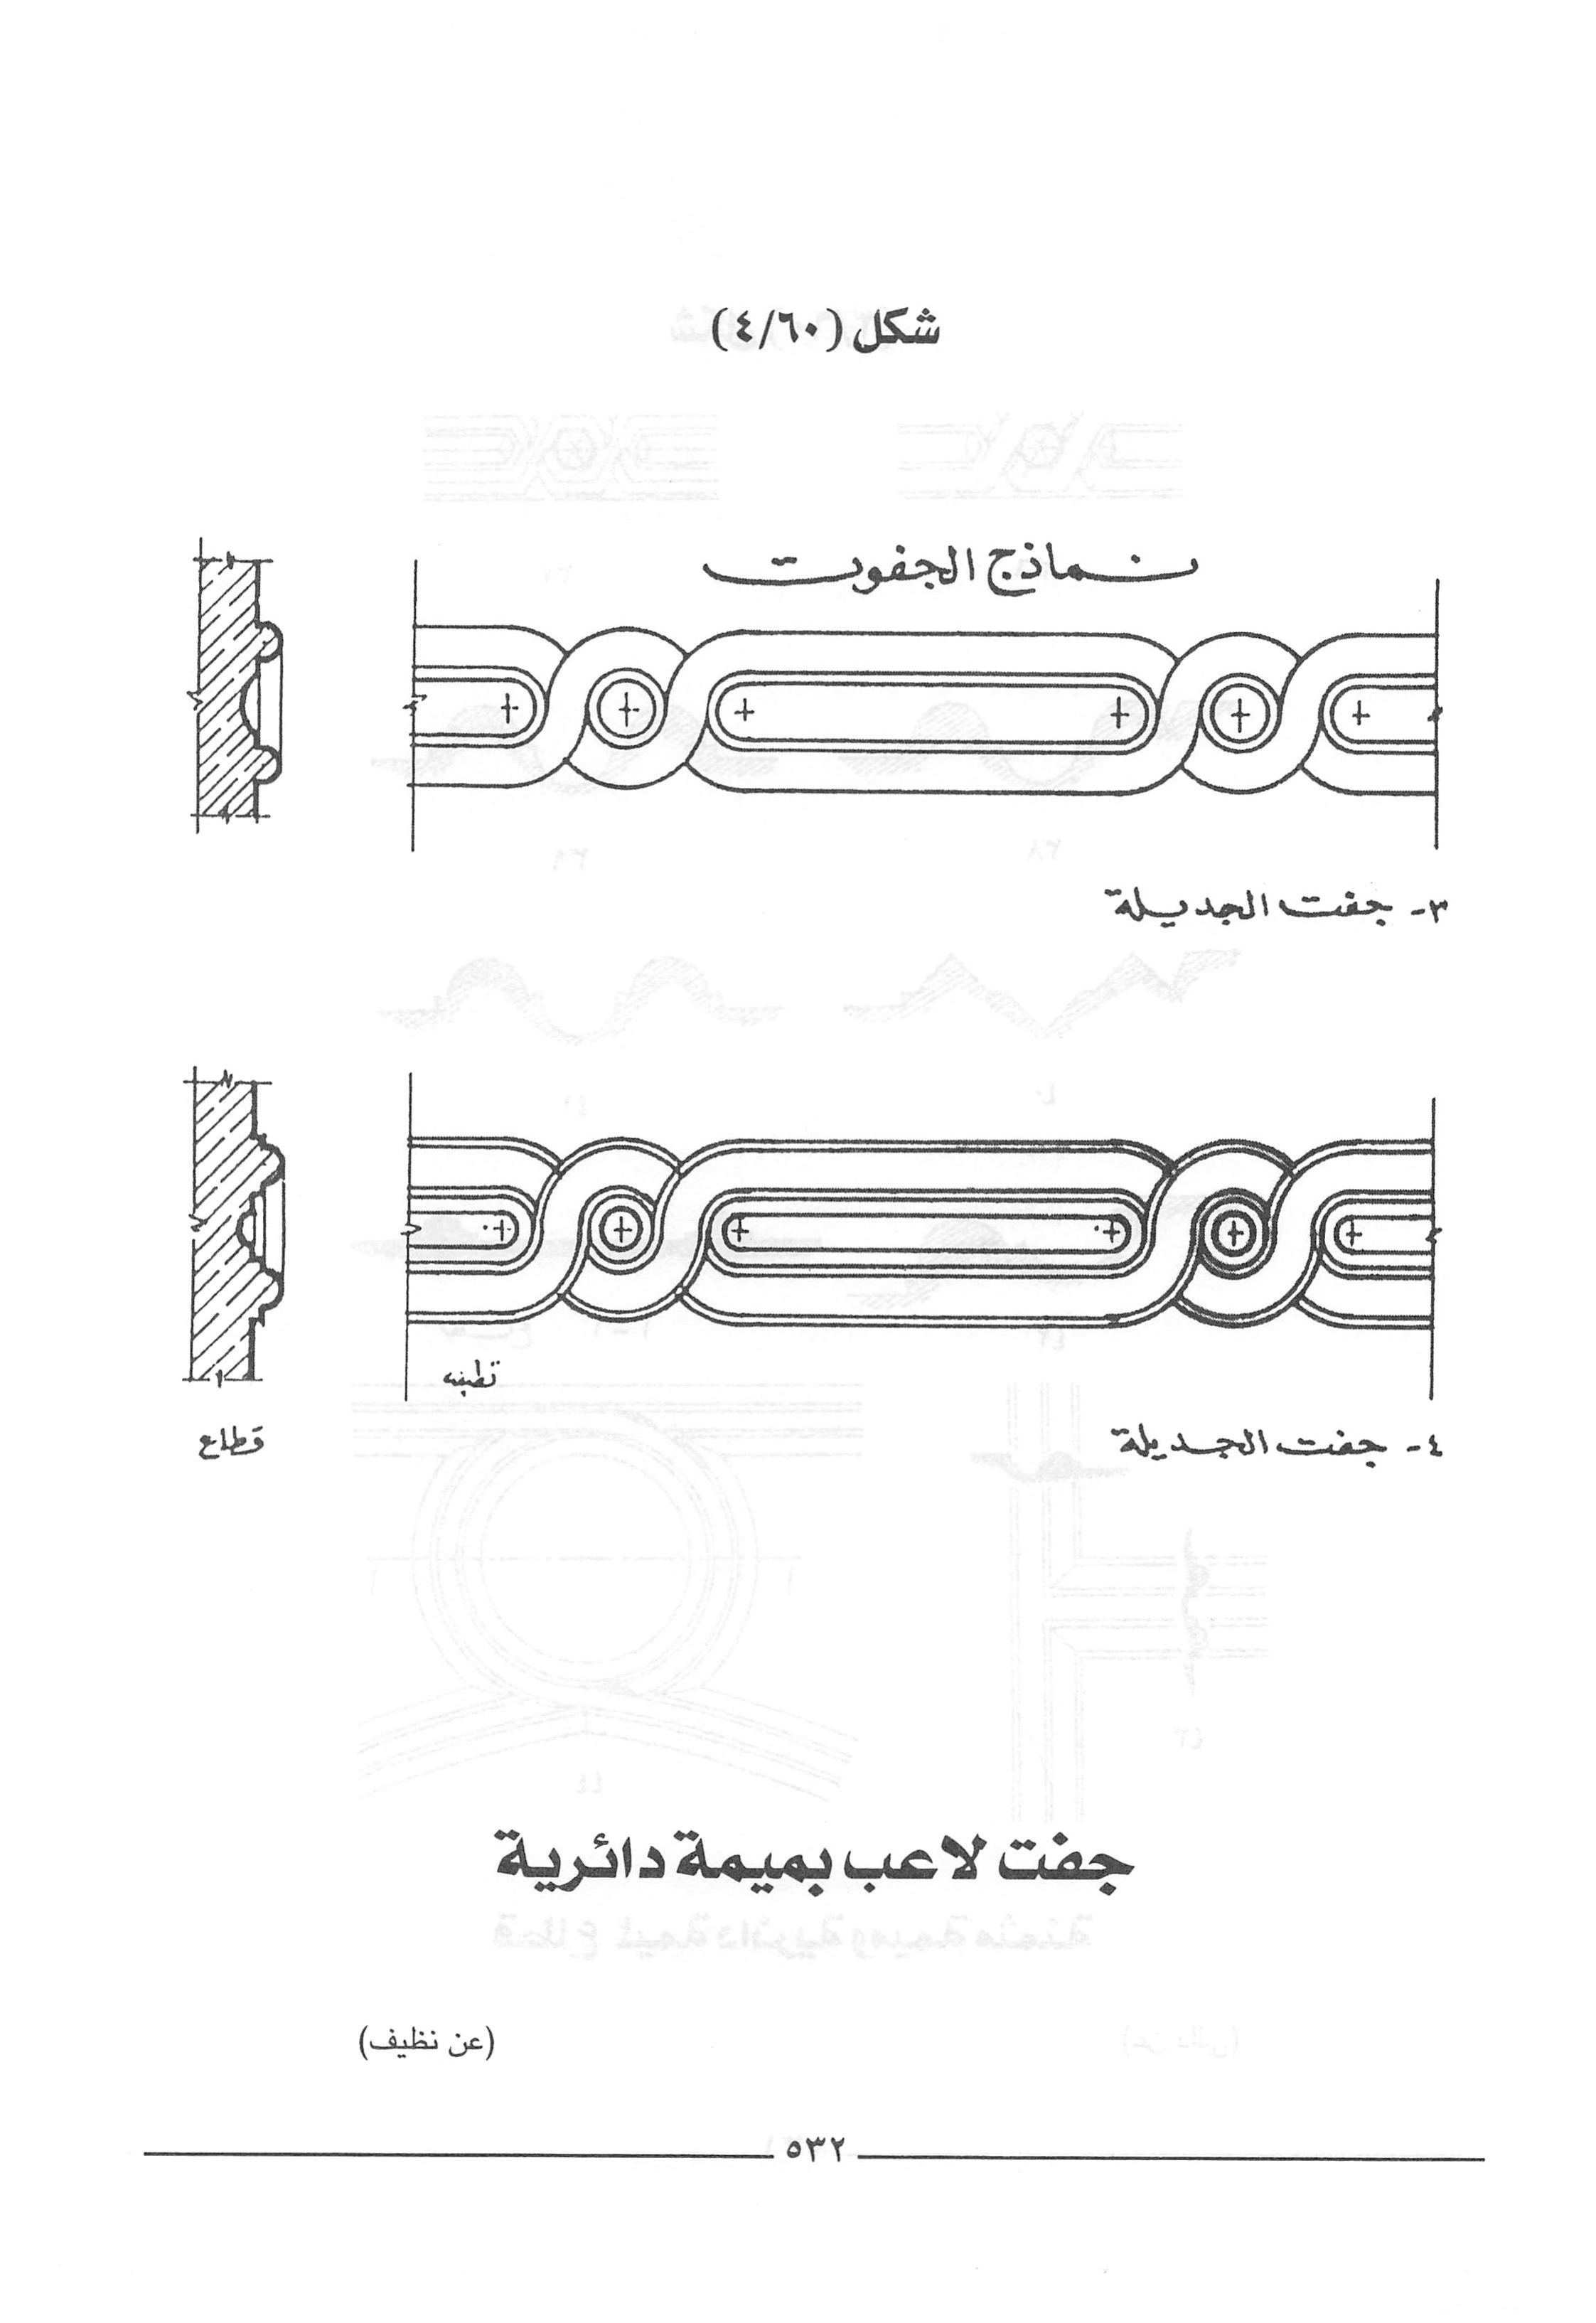 شكل (٤/٦٠)
نماذج الجفوت
٣- جفت الجديلة
٤- جفت الجديلة
قطاع
جفت لاعب بميمة دائرية
(عن نظيف)
٥٣٢